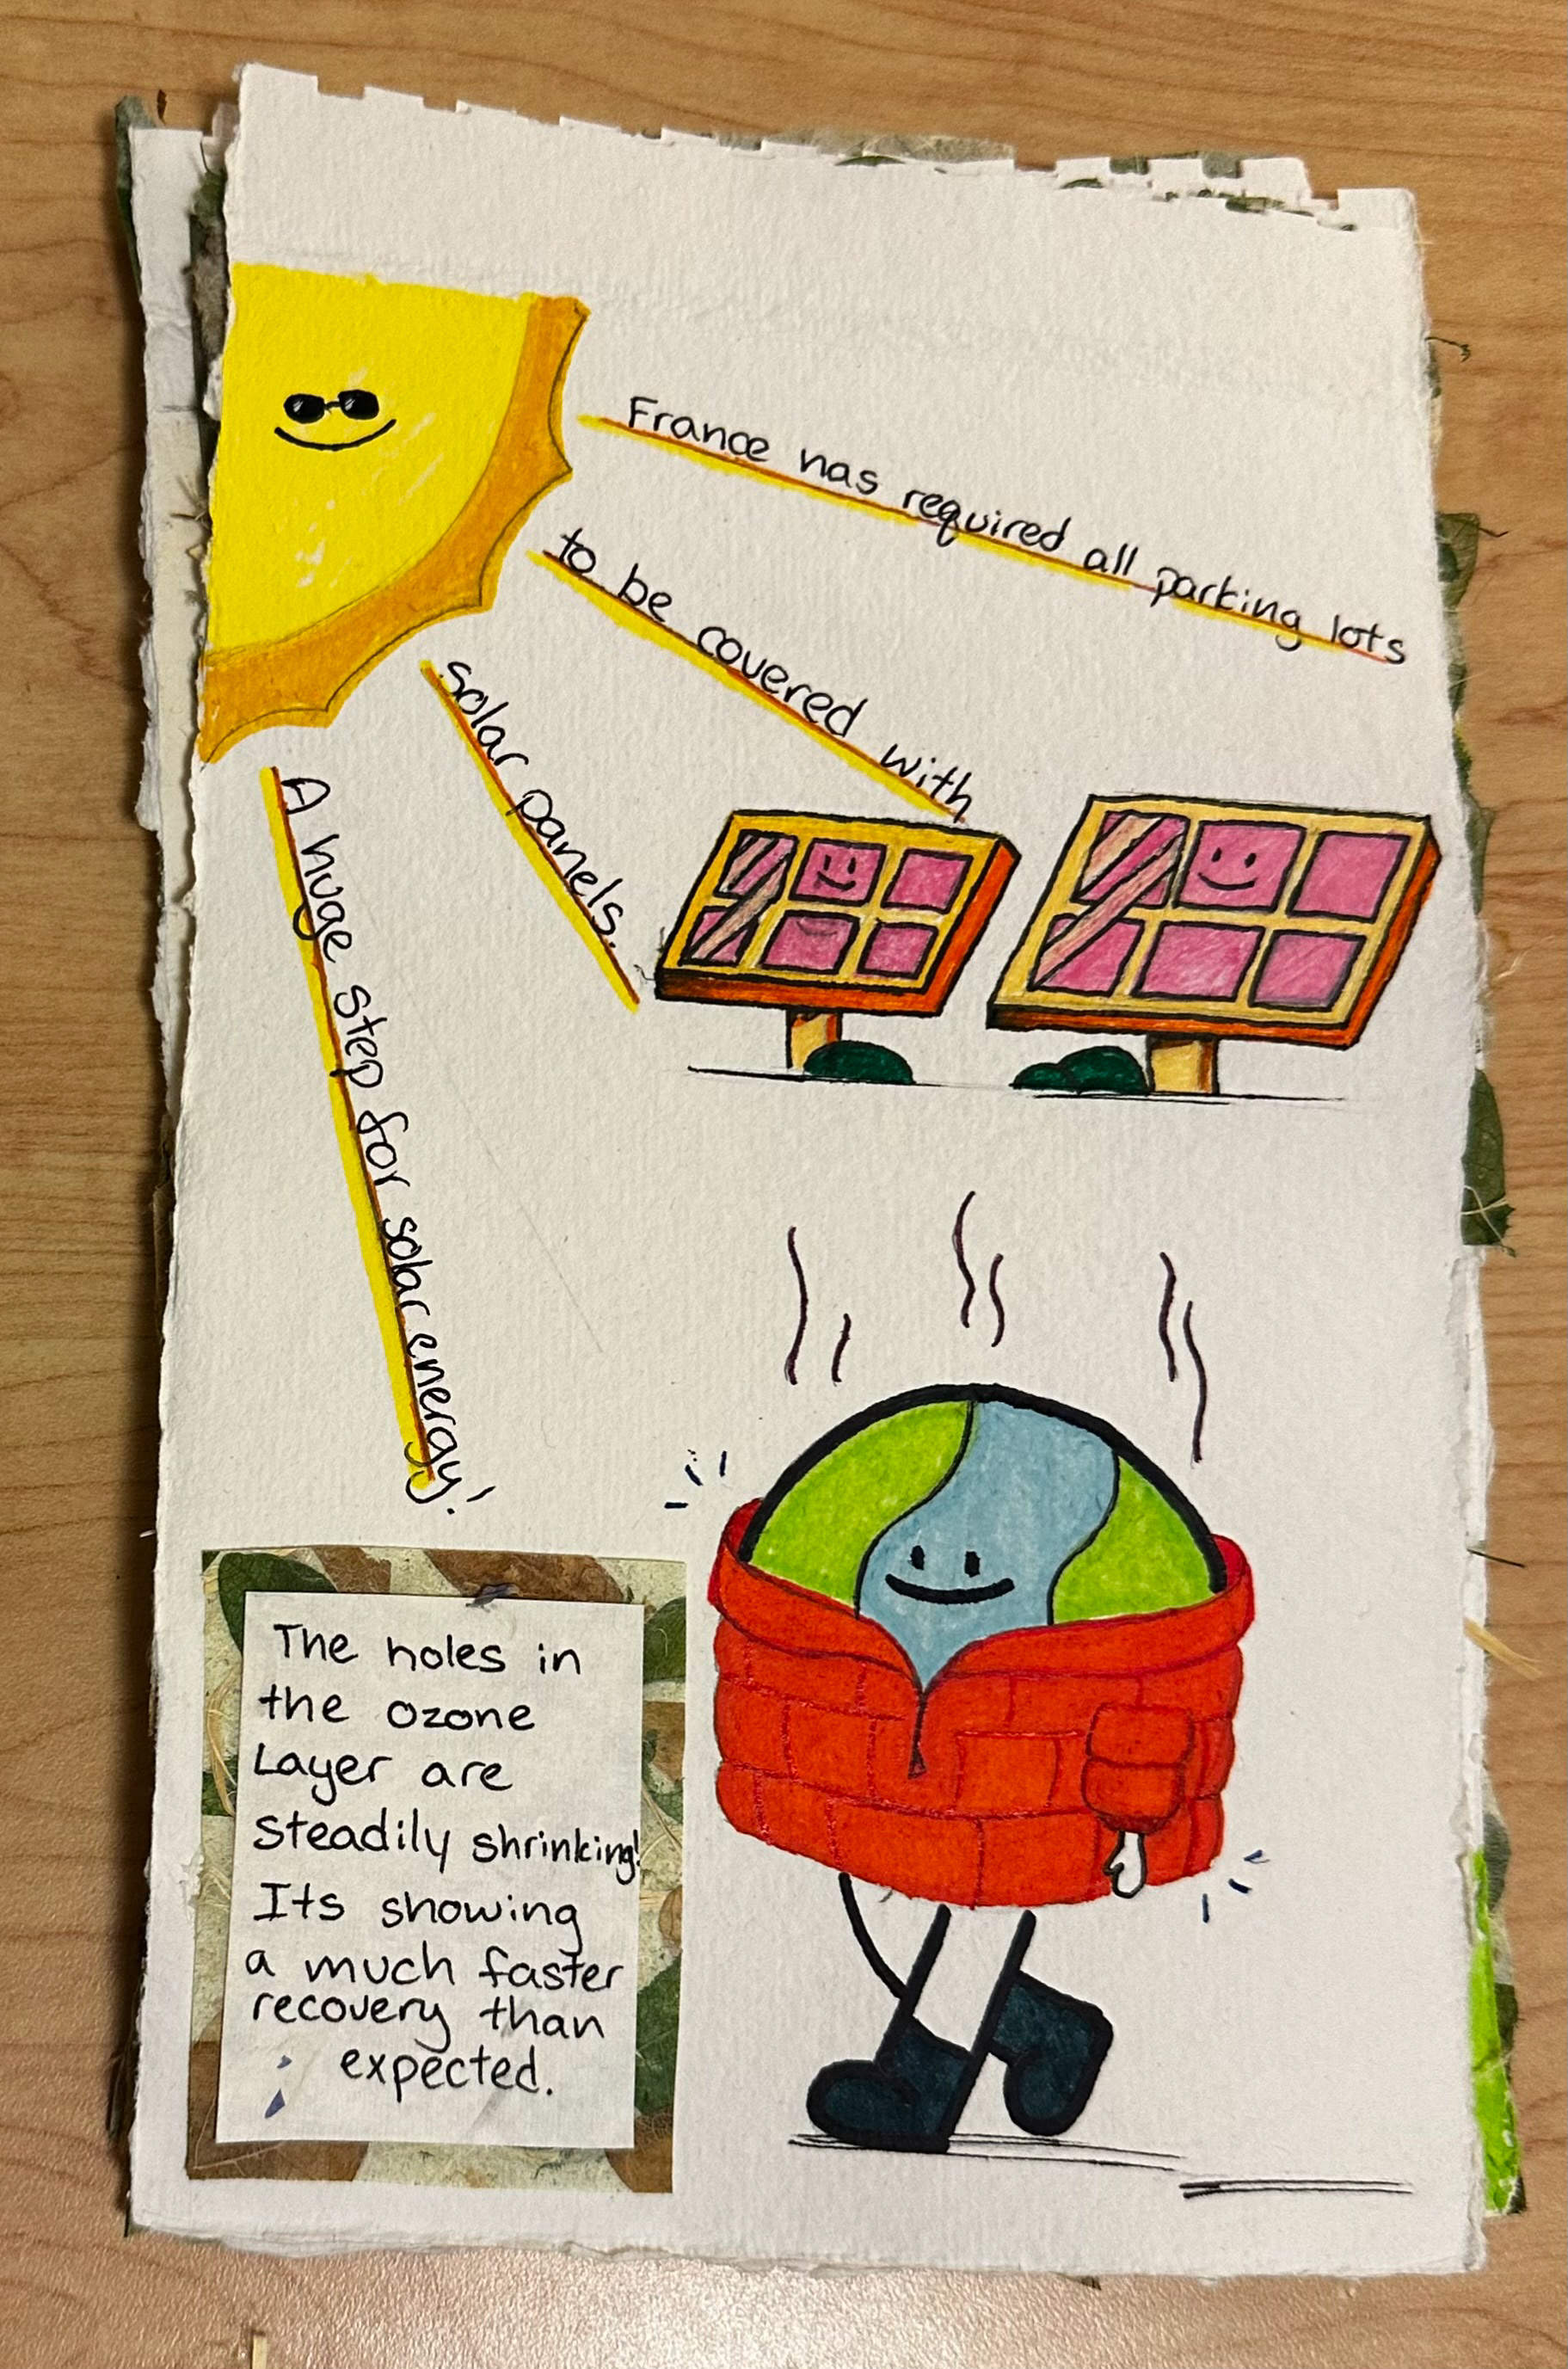 France has required all parking lots
to be covered with
solar panels.
A huge step for solar energy!
The holes in
the ozone
Layer are
steadily shrinking!
Its showing
a much faster
recovery than
expected.